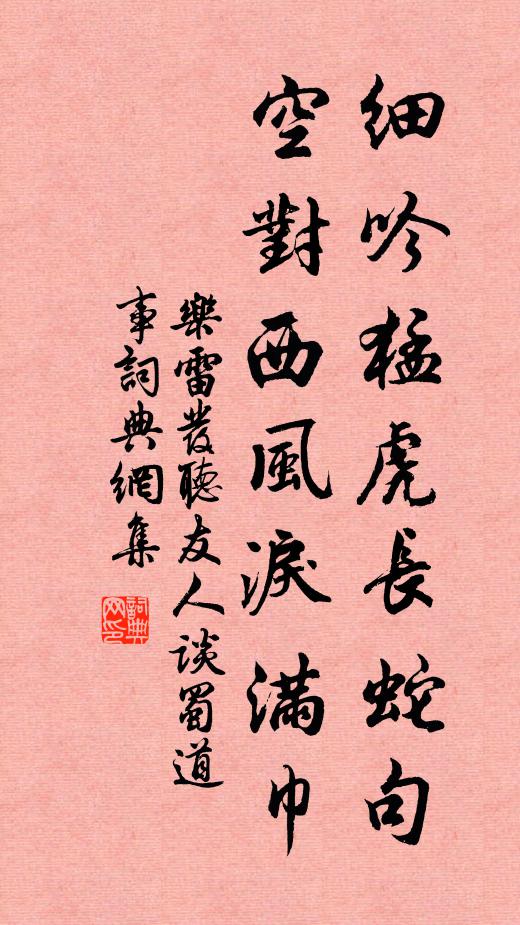 細吟猛虎長蛇句
空對西風淚滿巾
樂雷發聽友人談蜀道
事詞典網集
詞典
网印